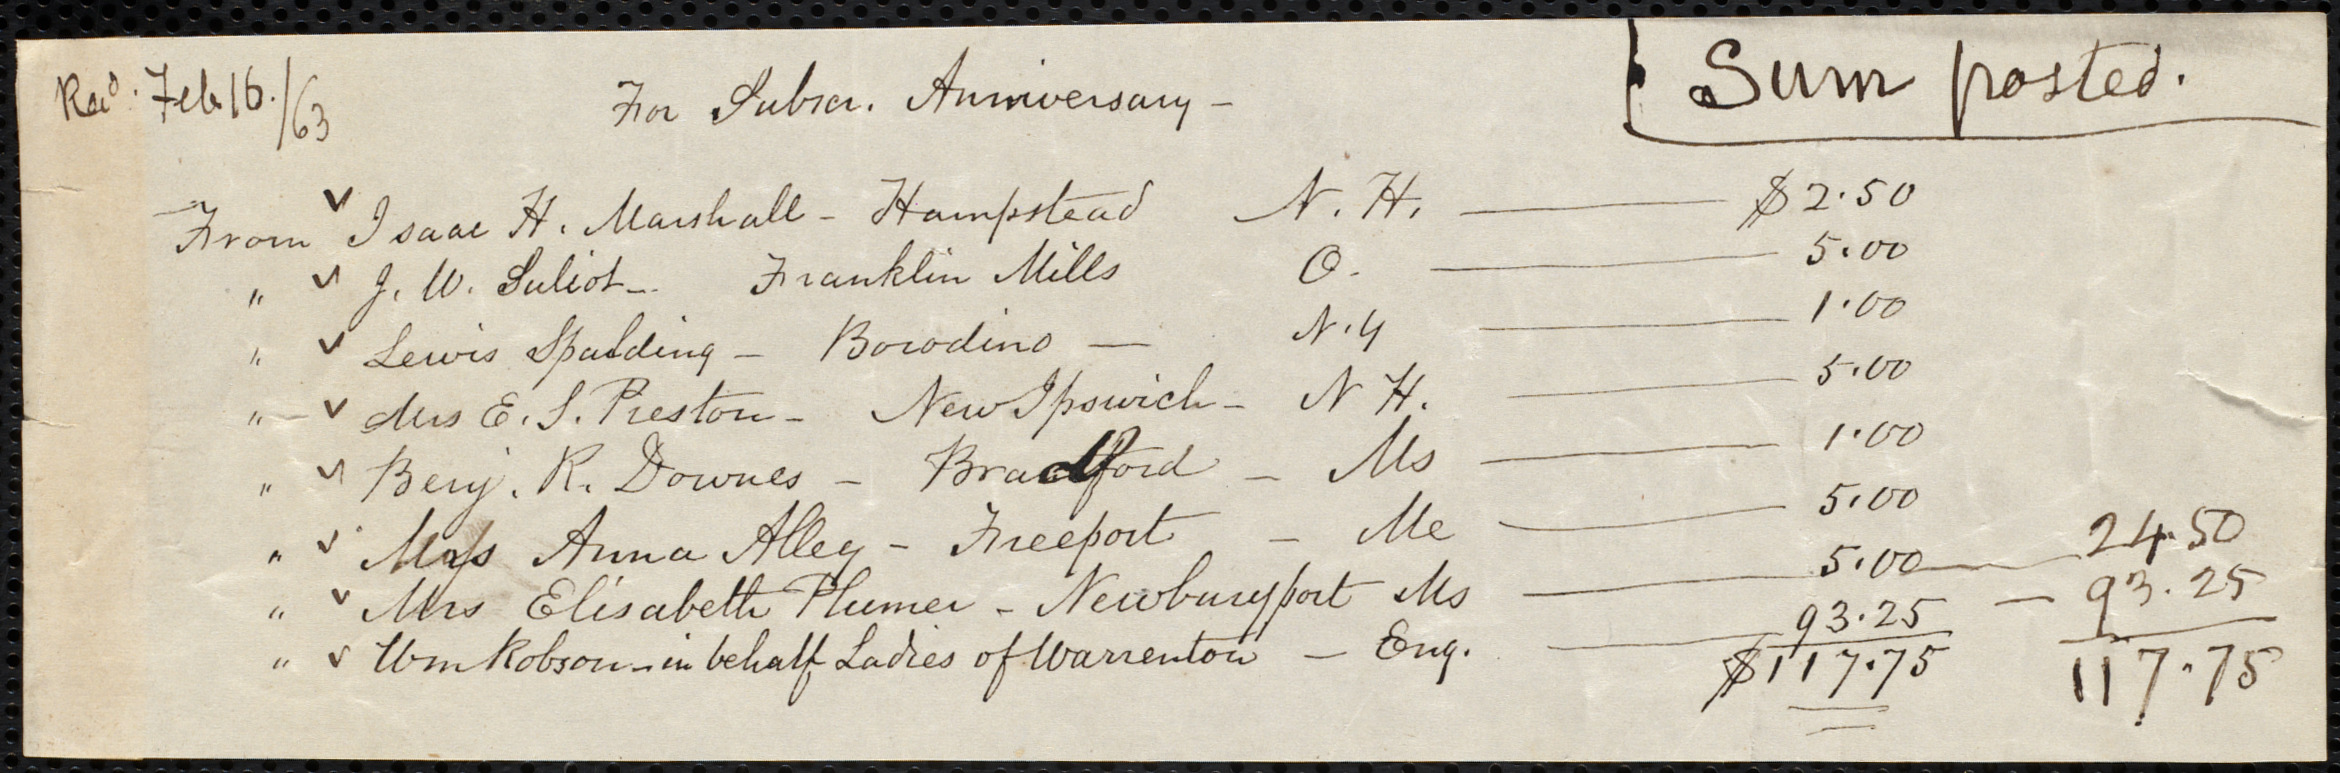 Recd. Feb 16./63
For Subscr. Anniversary –
Sum posted.
From ✓ Isaac H. Marshall – Hampstead N. H. — $2.50
" ✓ J. W. Suliot – Franklin Mills O. — 5.00
" ✓ Lewis Spalding – Borodino — N.Y — 1.00
" ✓ Mrs E. S. Preston – New Ipswich – N H. — 5.00
" ✓ Benj. R. Downes – Bradford – Ms — 1.00
" ✓ Mrs Anna Alley – Freeport – Me — 5.00
" ✓ Mrs Elisabeth Plumer – Newburyport Ms — 5.00 — 24.50
" ✓ Wm Robson – in behalf Ladies of Warrenton – Eng. — 93.25 — 93.25
$117.75 117.75